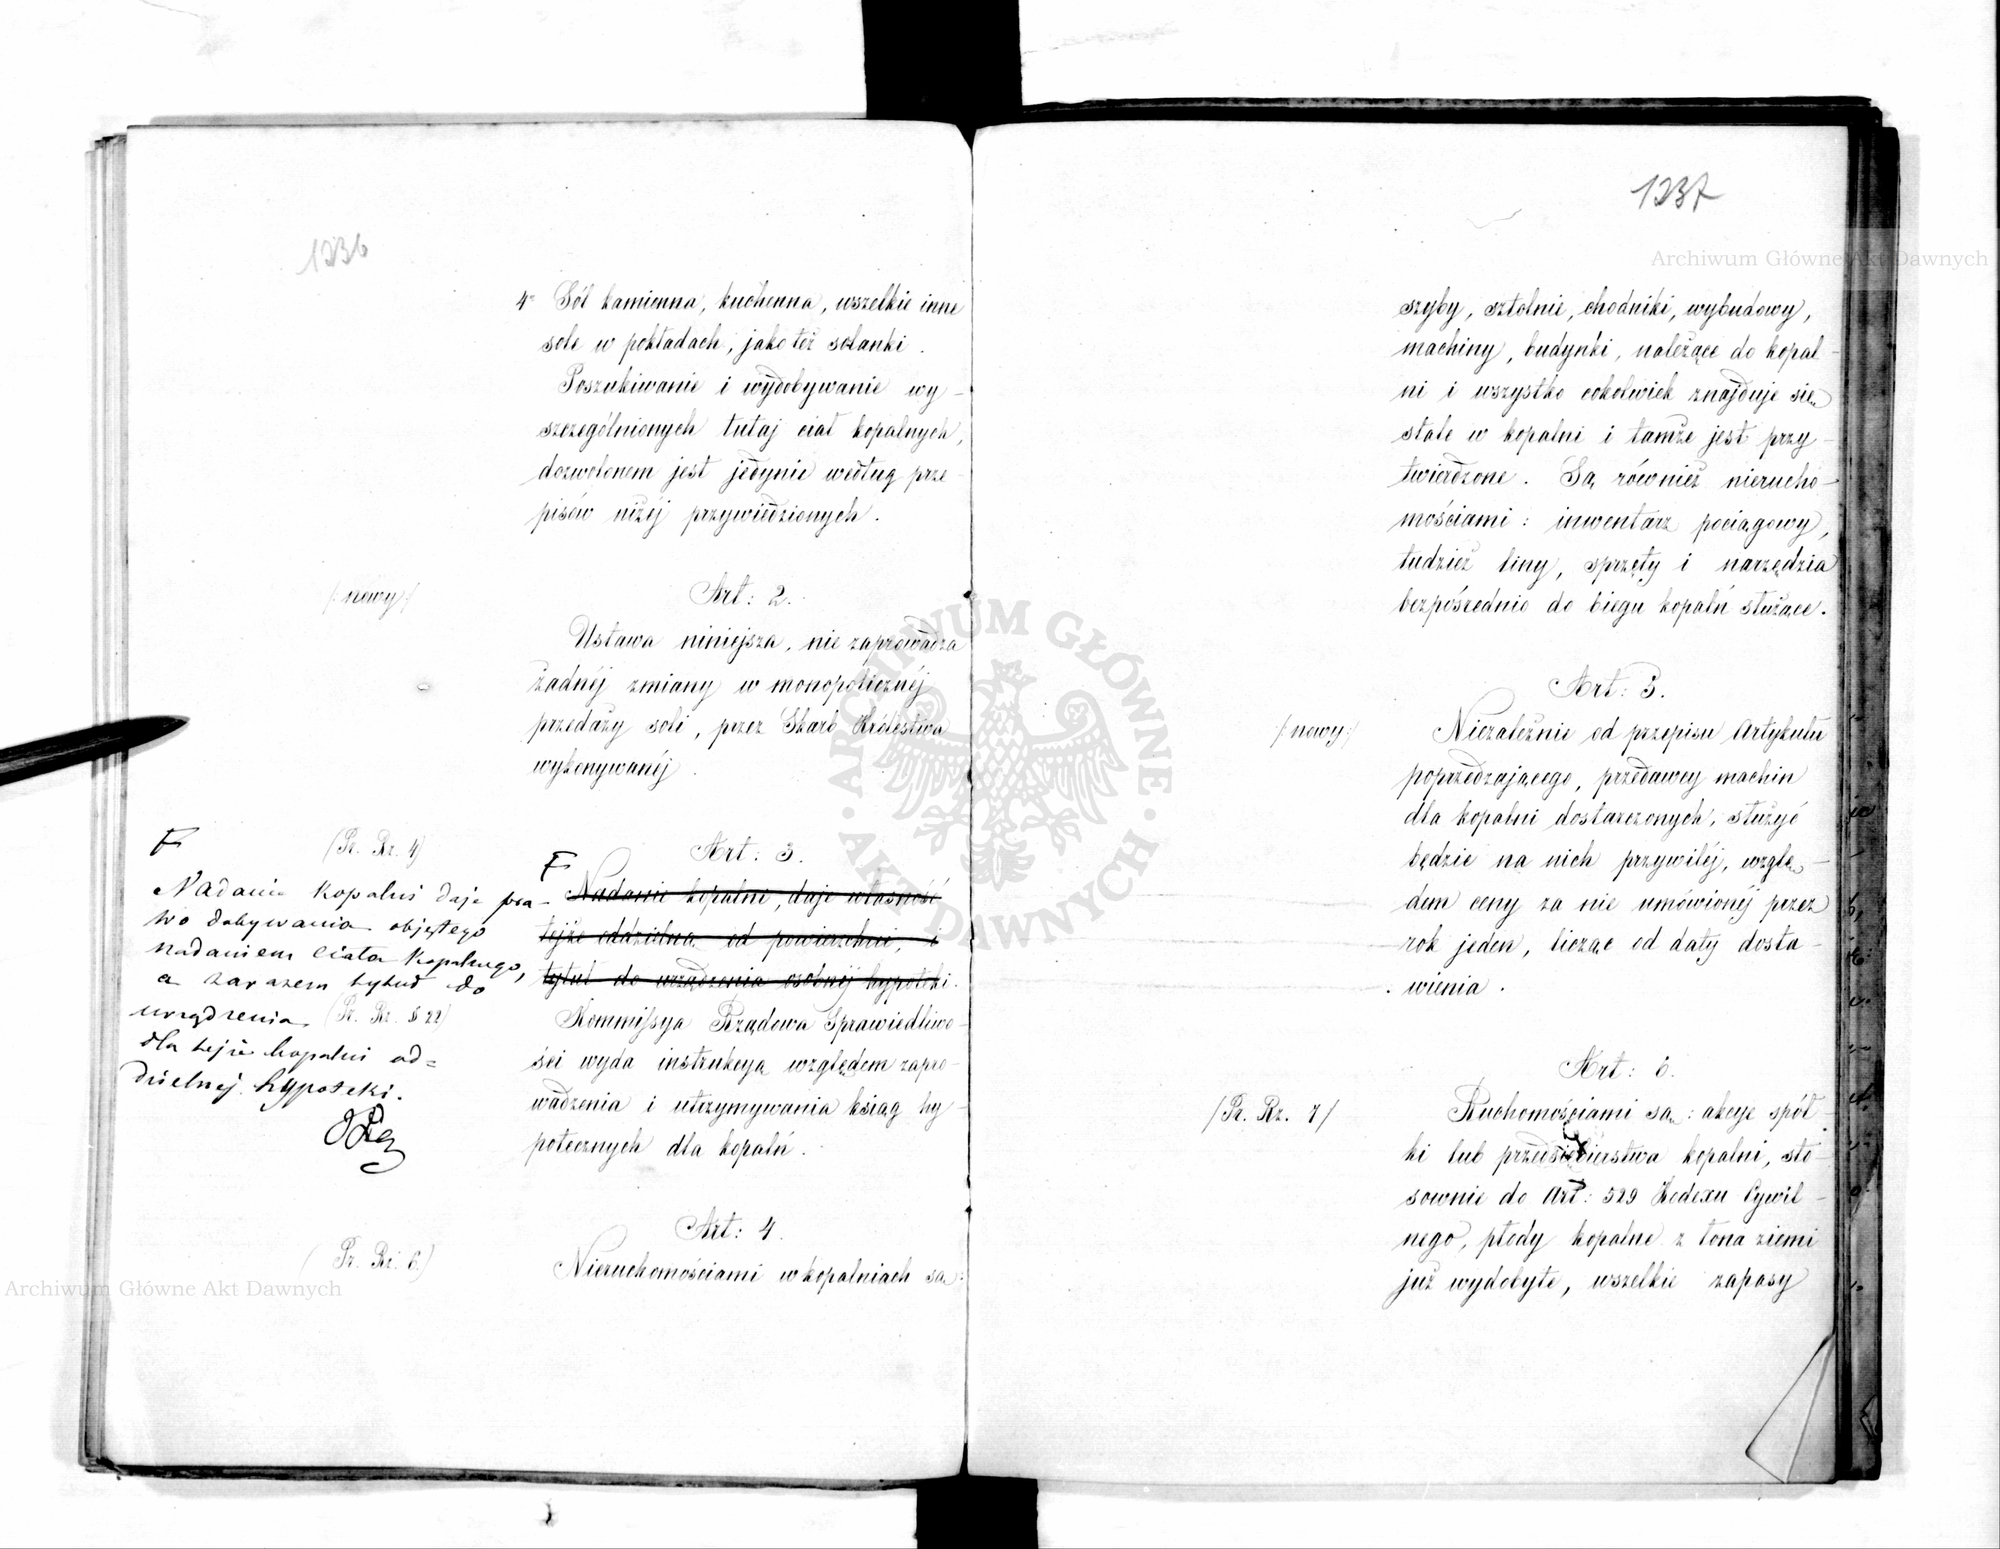 1236
4° Sól kamienna, kuchenna, wszelkie inne
sole w pokładach, jako też solanki.
Poszukiwanie i wydobywanie wy-
szczególnionych tutaj ciał kopalnych,
dozwolonem jest jedynie według prze-
pisów niżej przywiedzionych.
/:nowy:/
Art: 2.
Ustawa niniejsza, nie zaprowadza
żadnéj zmiany w monopolicznéj
przedaży soli, przez Skarb Królestwa
wykonywanéj.
(Pr. Rz. 4)
Art: 3.
Nadanie kopalni, daje własność
tejże oddzielną od powierzchni, i
tytuł do urządzenia osobnéj hypoteki.
Kommissya Rządowa Sprawiedliwo-
ści wyda instrukcyą względem zapro-
wadzenia i utrzymywania ksiąg hy-
potecznych dla kopalń.
Nadanie kopalni daje pra-
wo dobywania objętego
nadaniem ciała kopalnego,
a zarazem tytuł do
urządzenia
(Pr. Rz. § 22)
dla tejże kopalni od=
dzielnej hypoteki.
(Pr. Rz. 6)
Art: 4.
Nieruchomościami w kopalniach są:
1237
szyby, sztolnie, chodniki, wybudowy,
machiny, budynki, należące do kopal-
ni i wszystko cokolwiek znajduje się
stale w kopalni i tamże jest przy-
twierdzone. Są również nierucho-
mościami: inwentarz pociągowy,
tudzież liny, sprzęty i narzędzia
bezpośrednio do biegu kopalń służące.
Art: 5.
/:nowy:/
Niezależnie od przepisu Artykułu
poprzedzającego, przedawcy machin
dla kopalni dostarczonych, służyć
będzie na nich przywiléj, wzglę-
dem ceny za nie umówionéj przez
rok jeden, licząc od daty dosta-
wienia.
Art: 6.
/Pr. Rz. 7/
Ruchomościami są: akcye spół-
ki lub przedsiębierstwa kopalni, sto-
sownie do Art: 529 Kodexu Cywil-
nego, płody kopalne z łona ziemi
już wydobyte, wszelkie zapasy
Archiwum Główne Akt Dawnych
Archiwum Główne Akt Dawnych
ARCHIWUM GŁÓWNE AKT DAWNYCH